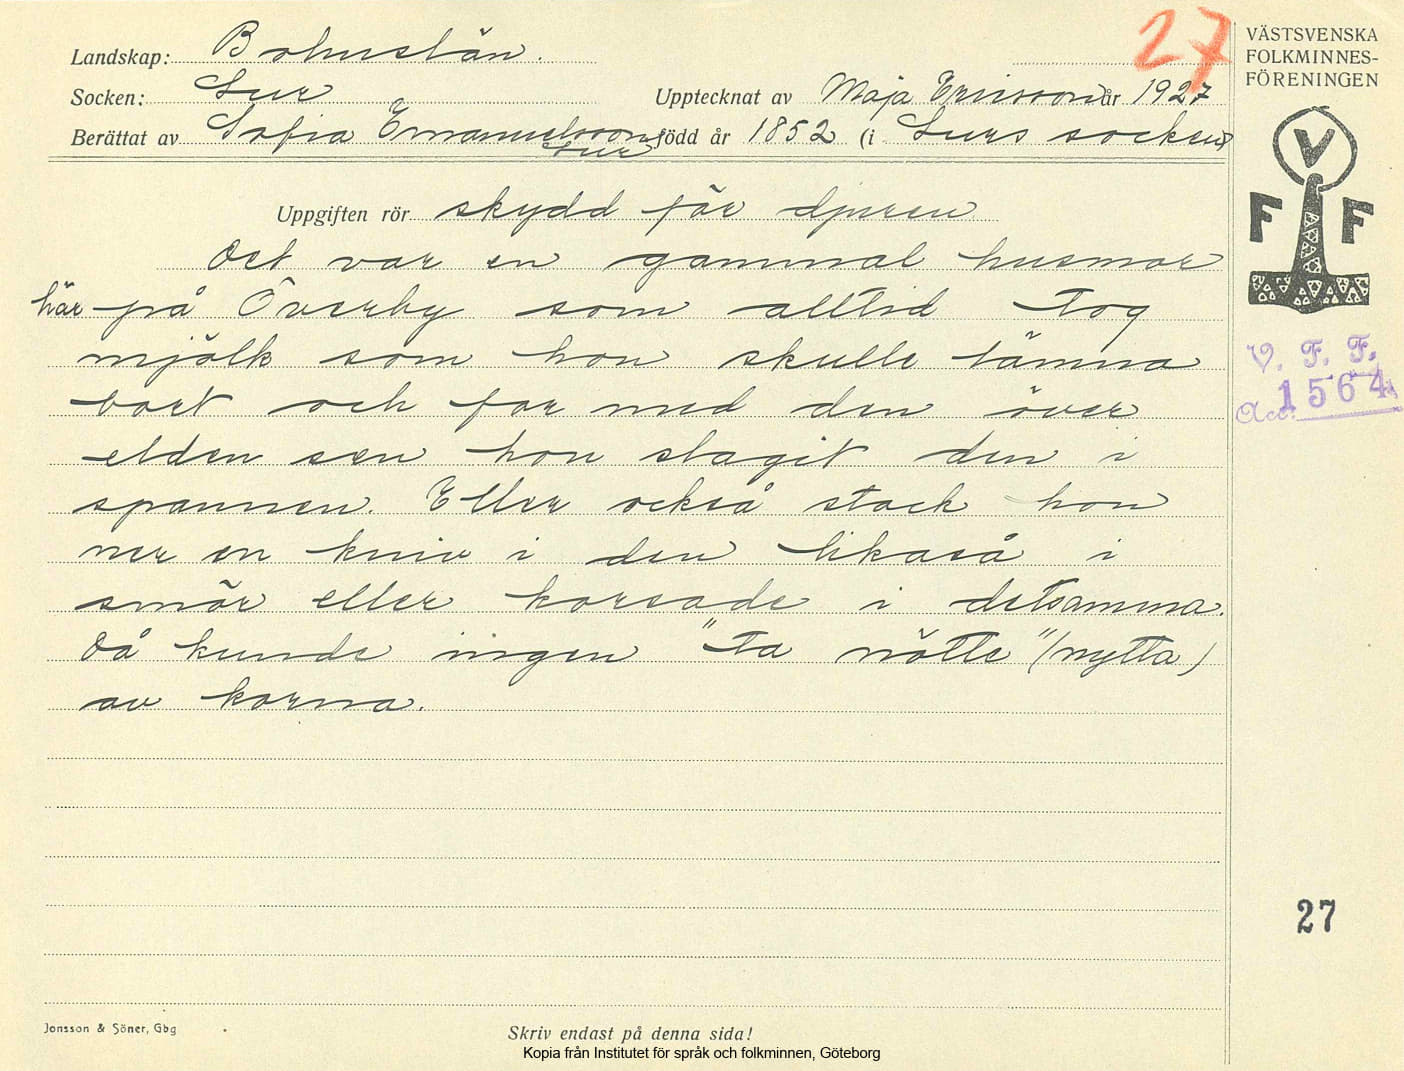 Landskap: Bohuslän. 27
Socken: Lur Upptecknat av Maja Ericsson år 1927
Berättat av Sofia Emanuelsson född år 1852 (i Lurs socken)
Lur
Uppgiften rör skydd för djuren
Det var en gammal husmor
här på Överby som alltid tog
mjölk som hon skulle lämna
bort och for med den över
elden sen hon slagit den i
spannen. Eller också stack hon
ner en kniv i den likaså i
smör eller korsade i detsamma.
Då kunde ingen "ta nötte" (nytta)
av korna.
VÄSTSVENSKA
FOLKMINNES-
FÖRENINGEN
V
F F
V. F. F.
Acc. 1564
27
Jonsson & Söner, Gbg
Skriv endast på denna sida!
Kopia från Institutet för språk och folkminnen, Göteborg